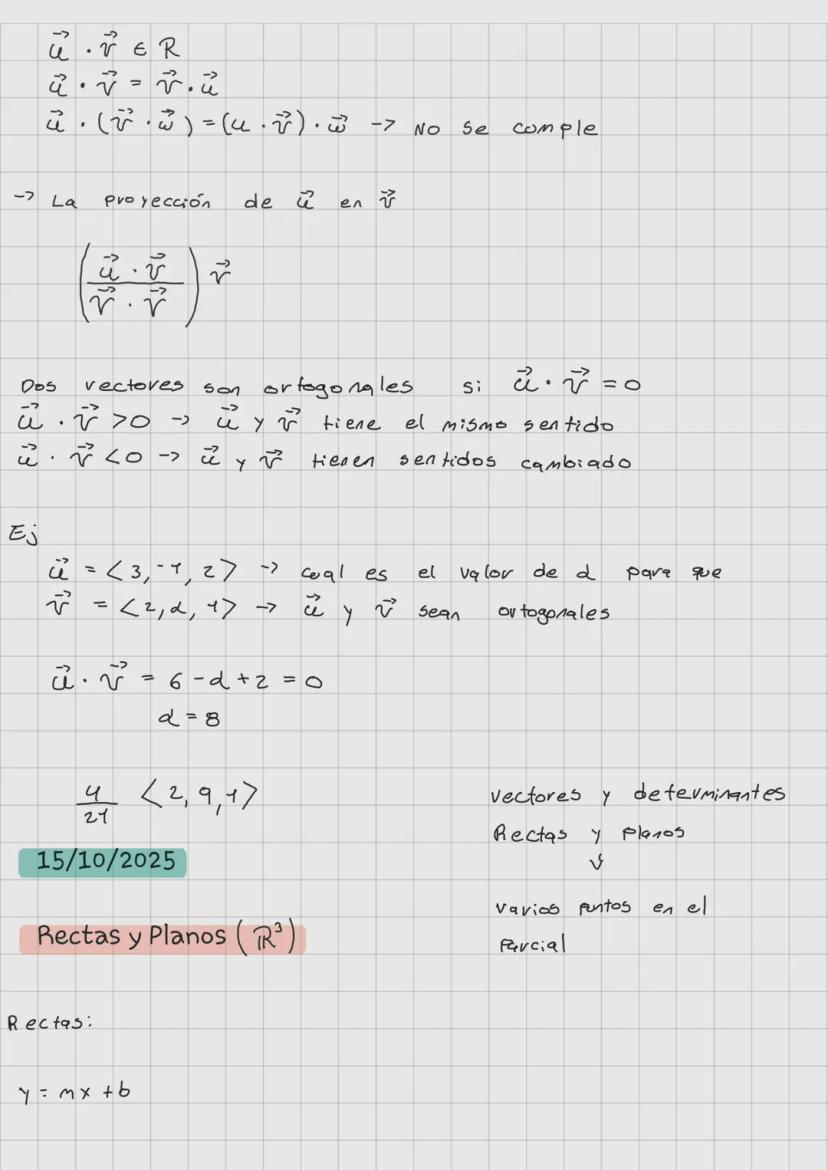 u⃗ · v⃗ ∈ R
u⃗ · v⃗ = v⃗ · u⃗
u⃗ · (v⃗ · w⃗) = (u · v⃗) · w⃗ -> No se comple
-> La proyección de u⃗ en v⃗
(u⃗ · v⃗ / v⃗ · v⃗) v⃗
Dos vectores son ortogonales si u⃗ · v⃗ = 0
u⃗ · v⃗ > 0 -> u⃗ y v⃗ tiene el mismo sentido
u⃗ · v⃗ < 0 -> u⃗ y v⃗ tienen sentidos cambiado
Ej
u⃗ = <3, -1, 2> -> cual es el valor de d para que
v⃗ = <2, d, 1> -> u⃗ y v⃗ sean ortogonales
u⃗ · v⃗ = 6 - d + 2 = 0
d = 8
4/21 <2, 9, 1>
vectores y determinantes
Rectas y planos
↓
varios puntos en el
parcial
15/10/2025
Rectas y Planos (ℝ³)
Rectas:
y = mx + b